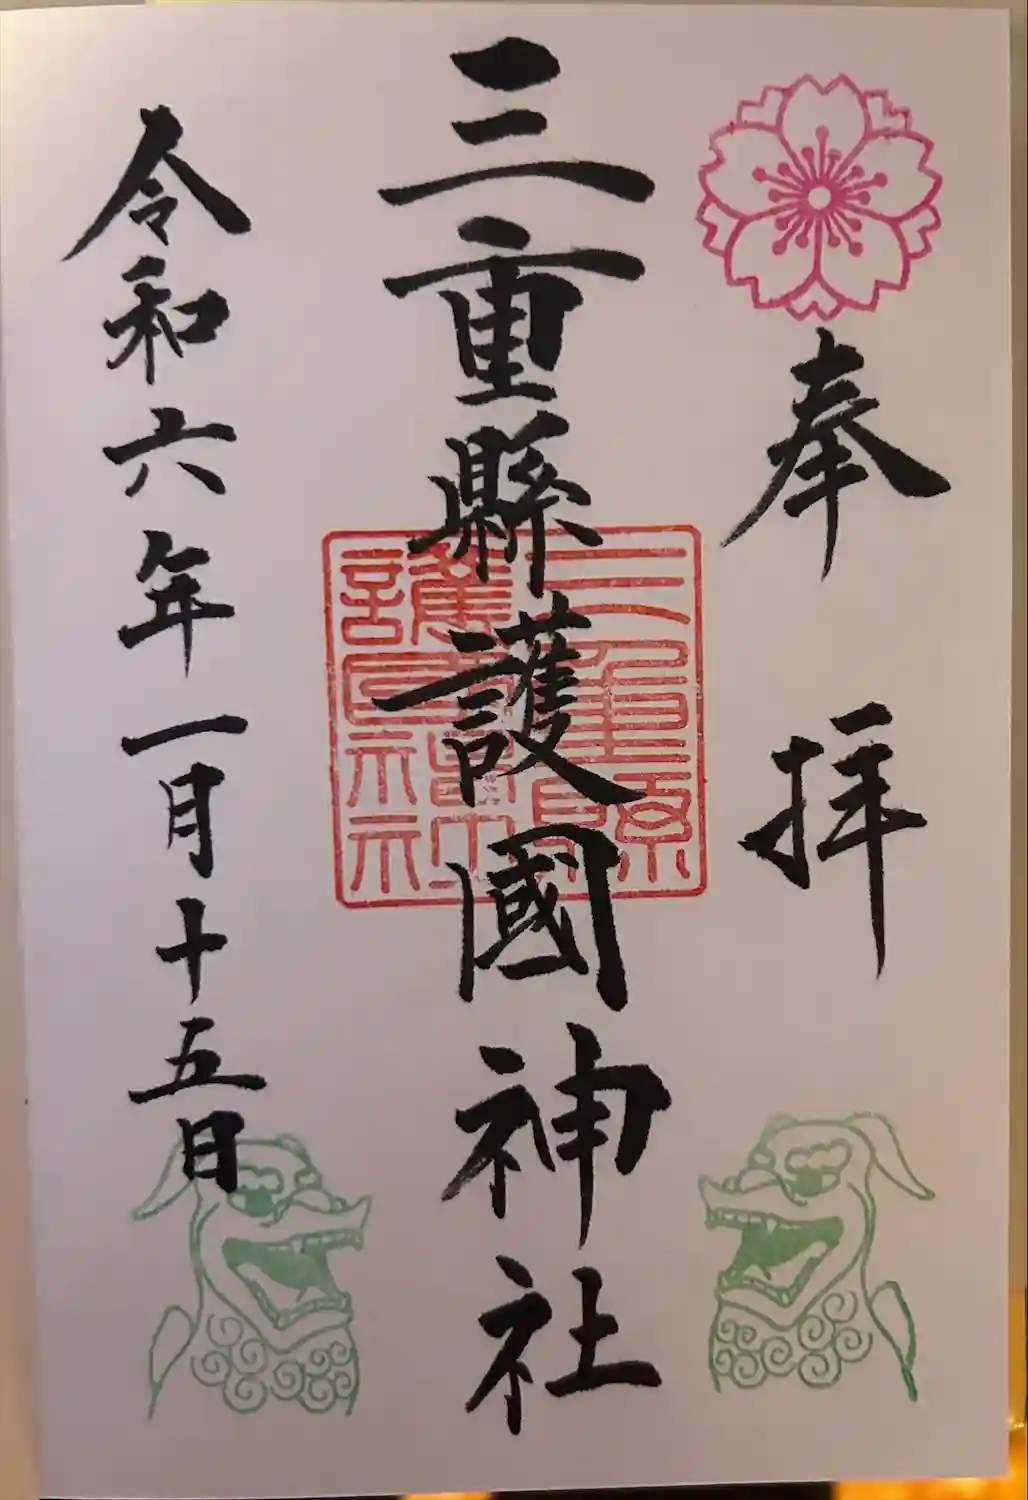 奉拝
三重縣護國神社
三重縣護國神社
令和六年一月十五日